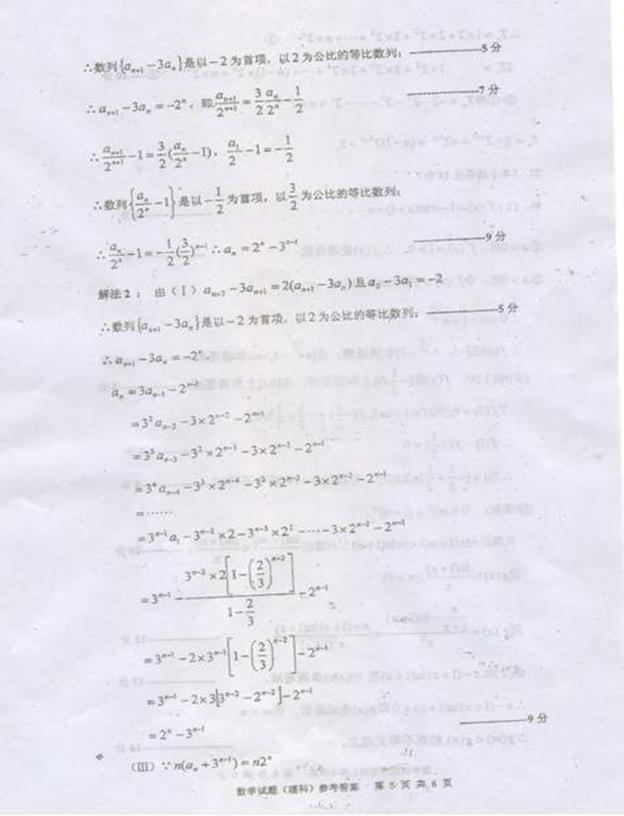 ∴数列{aₙ₊₁－3aₙ}是以－2为首项，以2为公比的等比数列；————5分
∴aₙ₊₁－3aₙ=－2ⁿ，即aₙ₊₁/2ⁿ⁺¹=3/2 aₙ/2ⁿ－1/2 ————7分
∴aₙ₊₁/2ⁿ⁺¹－1=3/2(aₙ/2ⁿ－1)，a₁/2－1=－1/2
∴数列{aₙ/2ⁿ－1}是以－1/2为首项，以3/2为公比的等比数列；
∴aₙ/2ⁿ－1=－1/2(3/2)ⁿ⁻¹∴aₙ=2ⁿ－3ⁿ⁻¹ ————9分
解法2：由（Ⅰ）aₙ₊₂－3aₙ₊₁=2(aₙ₊₁－3aₙ)且a₂－3a₁=－2
∴数列{aₙ₊₁－3aₙ}是以－2为首项，以2为公比的等比数列；————5分
∴aₙ₊₁－3aₙ=－2ⁿ
aₙ=3aₙ₋₁－2ⁿ⁻¹
=3²aₙ₋₂－3×2ⁿ⁻²－2ⁿ⁻¹
=3³aₙ₋₃－3²×2ⁿ⁻³－3×2ⁿ⁻²－2ⁿ⁻¹
=3⁴aₙ₋₄－3³×2ⁿ⁻⁴－3²×2ⁿ⁻³－3×2ⁿ⁻²－2ⁿ⁻¹
=……
=3ⁿ⁻¹a₁－3ⁿ⁻²×2－3ⁿ⁻³×2²－…－3×2ⁿ⁻²－2ⁿ⁻¹
=3ⁿ⁻¹－3ⁿ⁻²×2[1－(2/3)ⁿ⁻²]/(1－2/3)－2ⁿ⁻¹
=3ⁿ⁻¹－2×3ⁿ⁻¹[1－(2/3)ⁿ⁻²]－2ⁿ⁻¹
=3ⁿ⁻¹－2×3[3ⁿ⁻²－2ⁿ⁻²]－2ⁿ⁻¹
=2ⁿ－3ⁿ⁻¹ ————9分
（Ⅲ）∵n(aₙ+3ⁿ⁻¹)=n2ⁿ
数学试题（理科）参考答案 第5页共6页